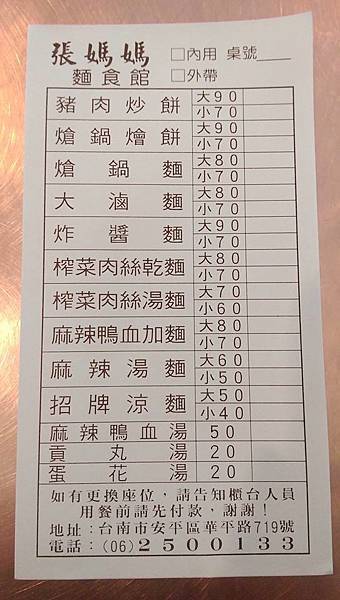 張媽媽 □內用 桌號____
麵食館 □外帶
豬肉炒餅 大90
小70
熗鍋燴餅 大90
小70
熗鍋麵 大80
小70
大滷麵 大80
小70
炸醬麵 大90
小70
榨菜肉絲乾麵 大80
小70
榨菜肉絲湯麵 大70
小60
麻辣鴨血加麵 大80
小70
麻辣湯麵 大60
小50
招牌涼麵 大50
小40
麻辣鴨血湯 50
貢丸湯 20
蛋花湯 20
如有更換座位，請告知櫃台人員
用餐前請先付款，謝謝！
地址：台南市安平區華平路719號
電話：(06)2500133